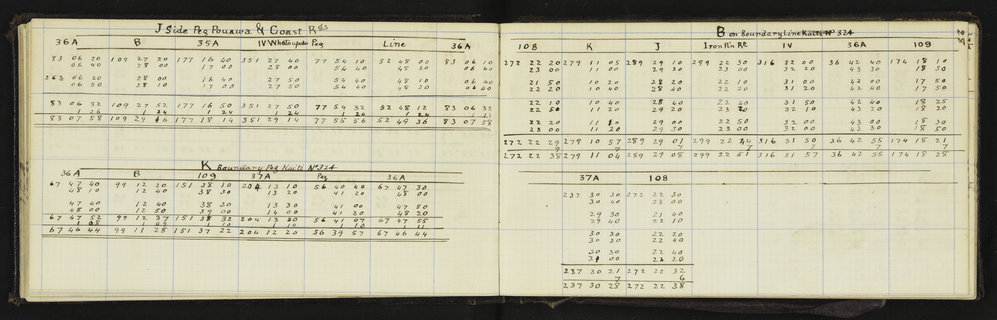 J Side Peg Pouawa & Coast Rds
36A B 35A IV Whataupoko Peg Line 36A
83 06 20 109 27 20 177 16 40 351 27 40 77 54 10 52 48 00 83 06 10
06 40 28 00 17 00 28 00 54 40 48 20 06 40
263 06 20 28 00 16 40 27 50 54 40 48 10 06 40
06 50 28 10 17 00 27 50 54 40 48 20 06 40
83 06 32 109 27 52 177 16 50 351 27 50 77 54 32 52 48 12 83 06 35
1 26 1 24 1 24 1 24 1 24 1 24 1 21
83 07 58 109 27 16 177 18 14 351 29 14 77 55 56 52 49 36 83 07 58
K Boundary Peg Kaiti No 324
36A B 109 37A Peg 36A
67 47 40 99 12 20 151 38 10 204 13 10 56 40 40 67 47 30
48 10 12 40 38 30 13 20 41 20 48 00
47 40 12 40 38 30 13 30 41 00 47 50
48 00 12 50 39 00 14 00 41 30 48 20
67 47 52 99 12 37 151 38 32 204 13 30 56 41 07 67 47 55
67 46 44 99 11 28 151 37 22 204 12 20 56 39 57 67 46 44
B on Boundary Line Kaiti No 324
28
108 K J Iron Pin Rl IV 36A 109
272 22 20 279 11 05 289 29 10 299 22 30 316 32 00 36 42 40 174 18 10
23 00 11 00 29 30 23 00 32 20 43 30 18 50
21 50 10 20 28 20 22 10 31 00 42 00 17 50
22 20 10 40 28 40 22 20 31 20 42 40 17 50
22 10 10 40 28 40 22 40 31 50 42 40 18 25
22 50 11 20 29 20 23 20 32 10 43 20 18 20
22 20 11 10 29 00 22 50 32 00 43 00 18 30
23 00 11 20 29 30 23 00 32 00 43 30 18 50
272 22 29 279 10 57 289 29 01 299 22 44 316 31 50 36 42 55 174 18 21
9 7 7 7 7 7 7
272 22 38 279 11 04 289 29 08 299 22 51 316 31 57 36 42 55 174 18 28
37A 108
237 30 30 172 22 30
30 40 23 00
29 30 21 40
29 40 22 10
30 30 22 20
30 30 22 40
30 30 22 40
31 00 23 20
237 30 21 272 22 32
7 6
237 30 28 272 22 38